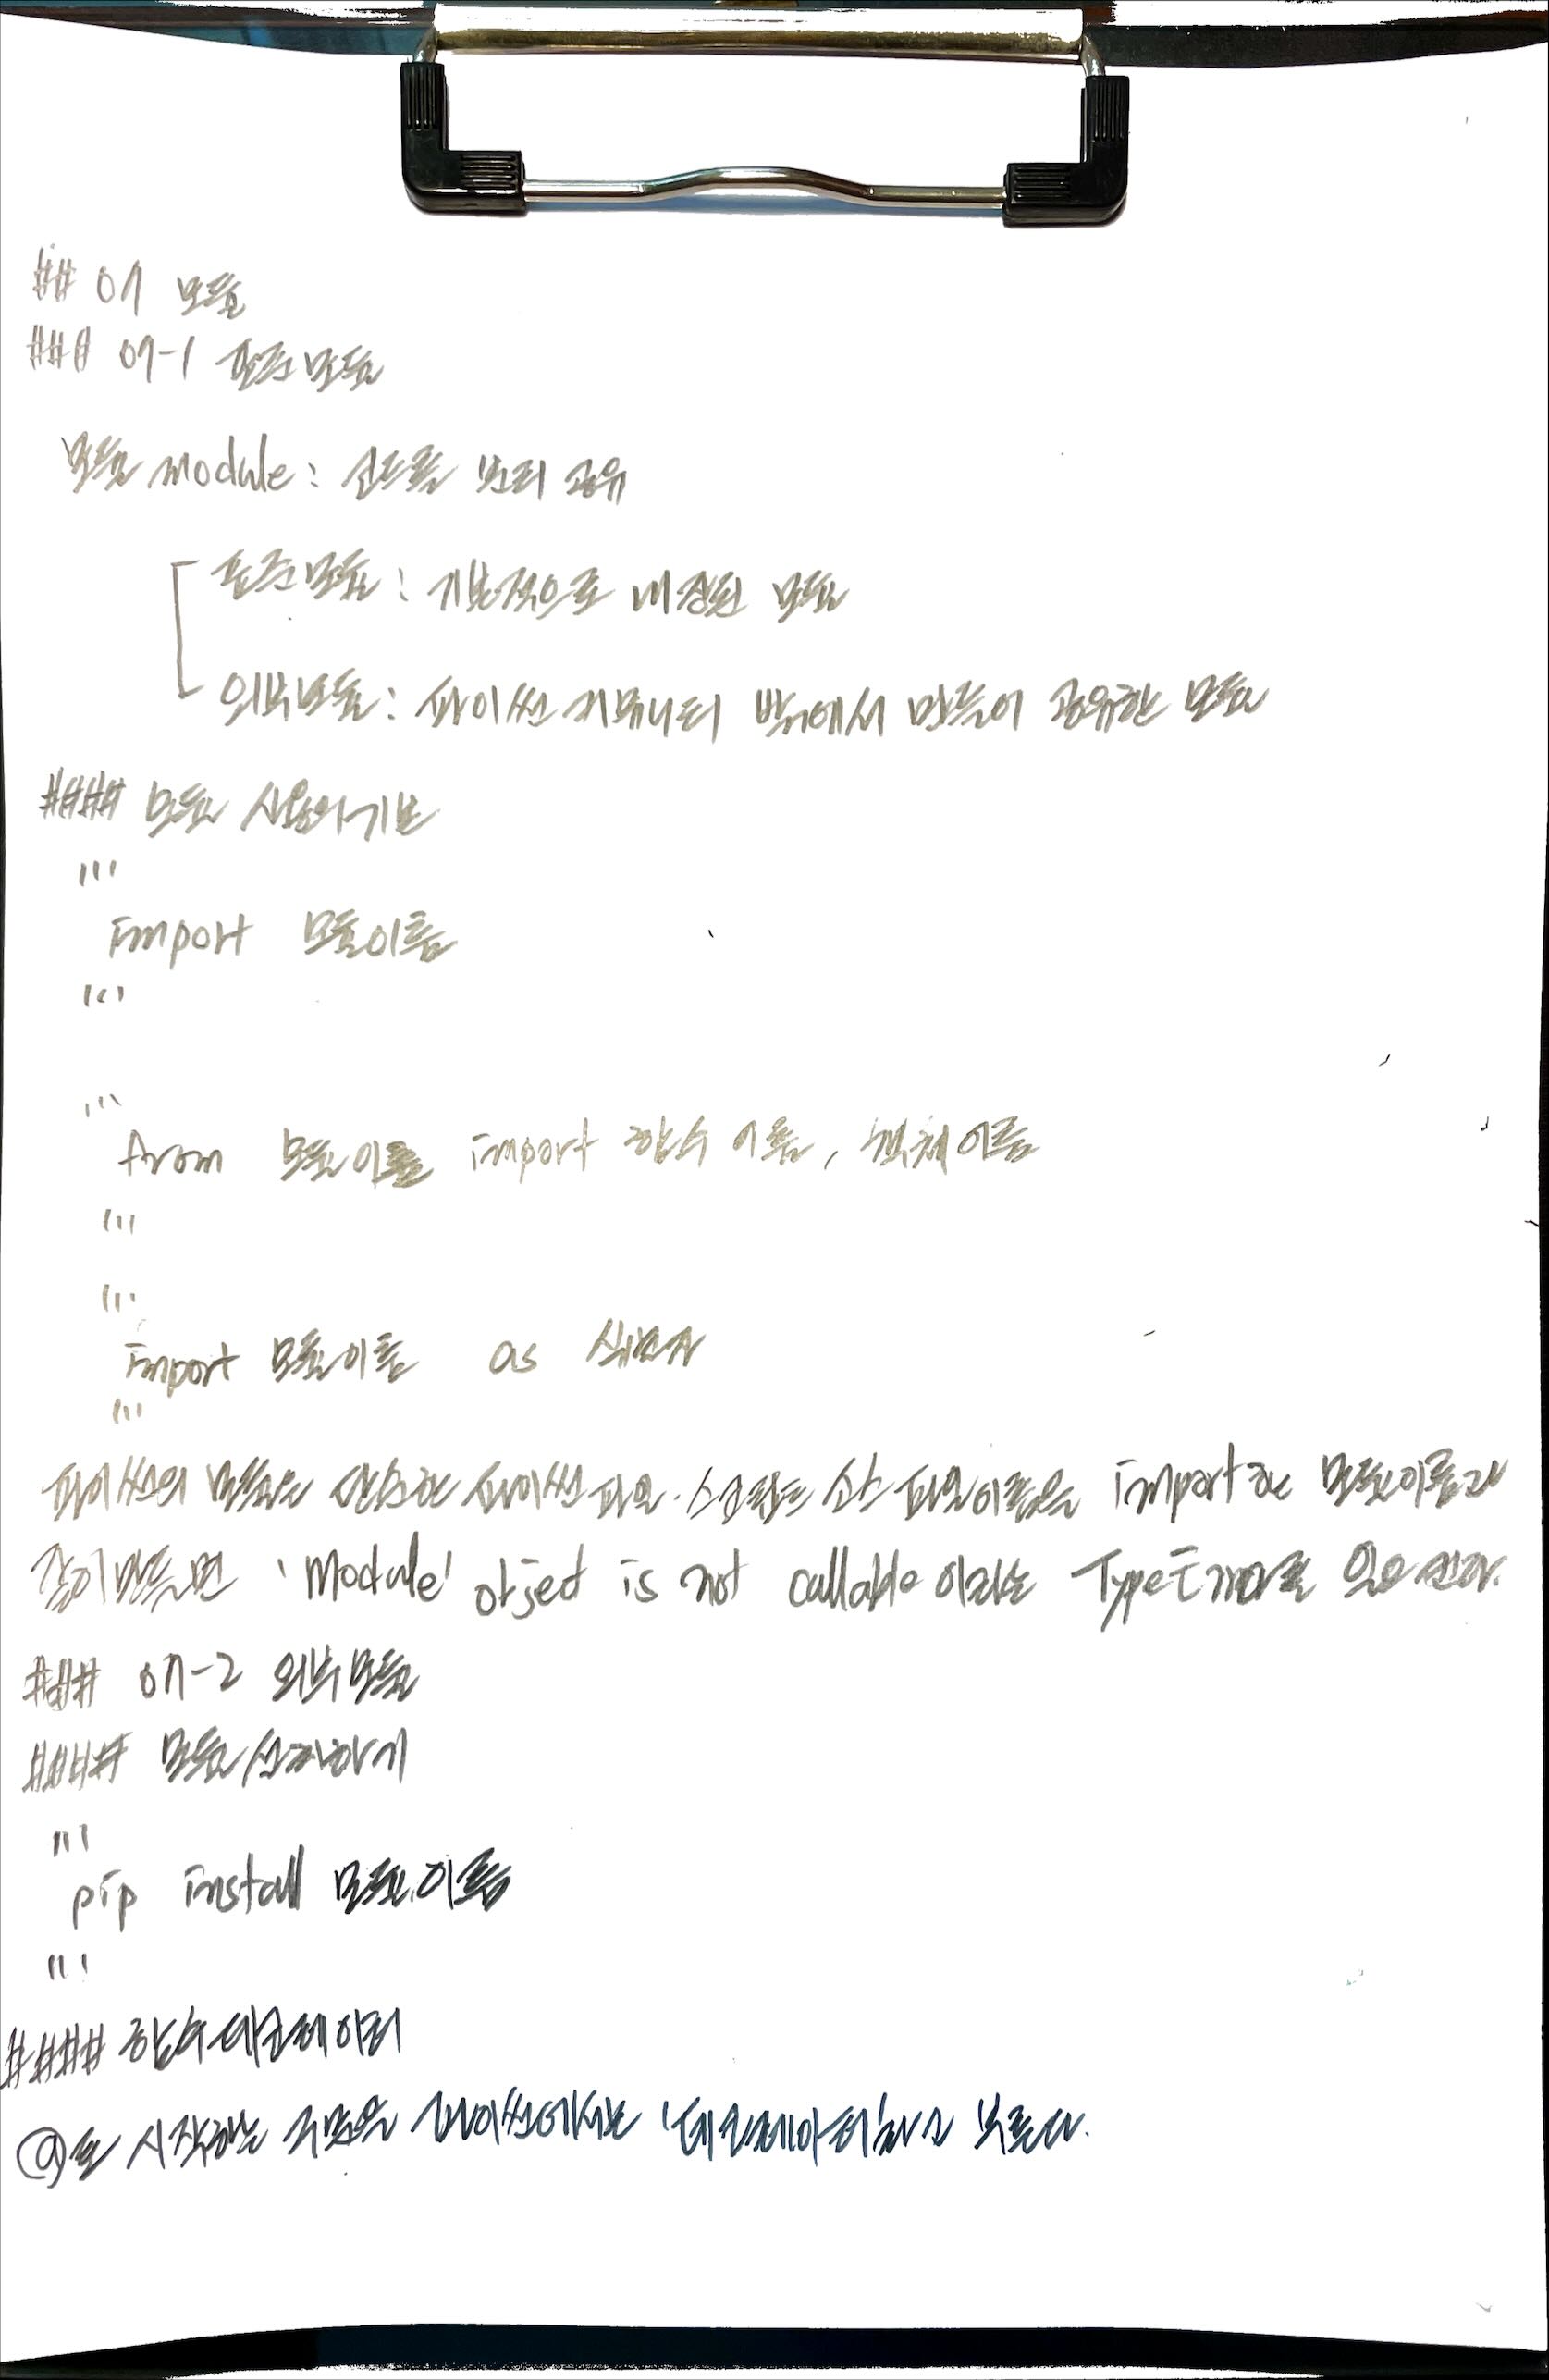 ## 07 모듈
### 07-1 표준 모듈
모듈 module : 코드를 분리 공유
표준 모듈 : 기본적으로 내장된 모듈
외부 모듈 : 파이썬 커뮤니티 밖에서 만들어 공유한 모듈
#### 모듈 사용의 기본
'''
import 모듈이름
'''
'''
from 모듈이름 import 함수 이름, 객체 이름
'''
'''
import 모듈이름 as 식별자
'''
파이썬의 모듈은 단순한 파이썬 파일. 소스 파일이름을 import한 모듈이름과
같이 만들면 'module' object is not callable 이라는 TypeError를 일으킨다.
### 07-2 외부 모듈
#### 모듈 설치하기
'''
pip install 모듈이름
'''
#### 함수 데코레이터
@로 시작하는 구문을 파이썬에서는 '데코레이터'라고 부른다.